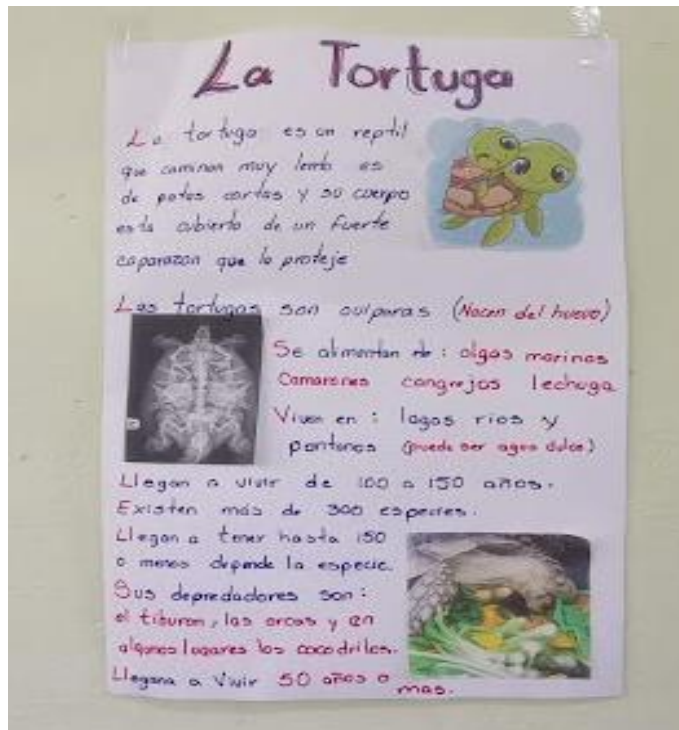 La Tortuga
La tortuga es un reptil
que caminan muy lento es
de patas cortas y su cuerpo
esta cubierto de un fuerte
caparazon que lo proteje
Las tortugas son oviparas (Nacen del huevo)
Se alimentan de: algas marinas
Camarones cangrejos lechuga
Viven en: lagos rios y
pantanos (puede ser agua dulce)
Llegan a vivir de 100 a 150 años.
Existen más de 300 especies.
Llegan a tener hasta 150
o menos depende la especie.
Sus depredadores son:
el tiburon, las orcas y en
algunos lugares los cocodrilos.
Llegana a vivir 50 años o mas.